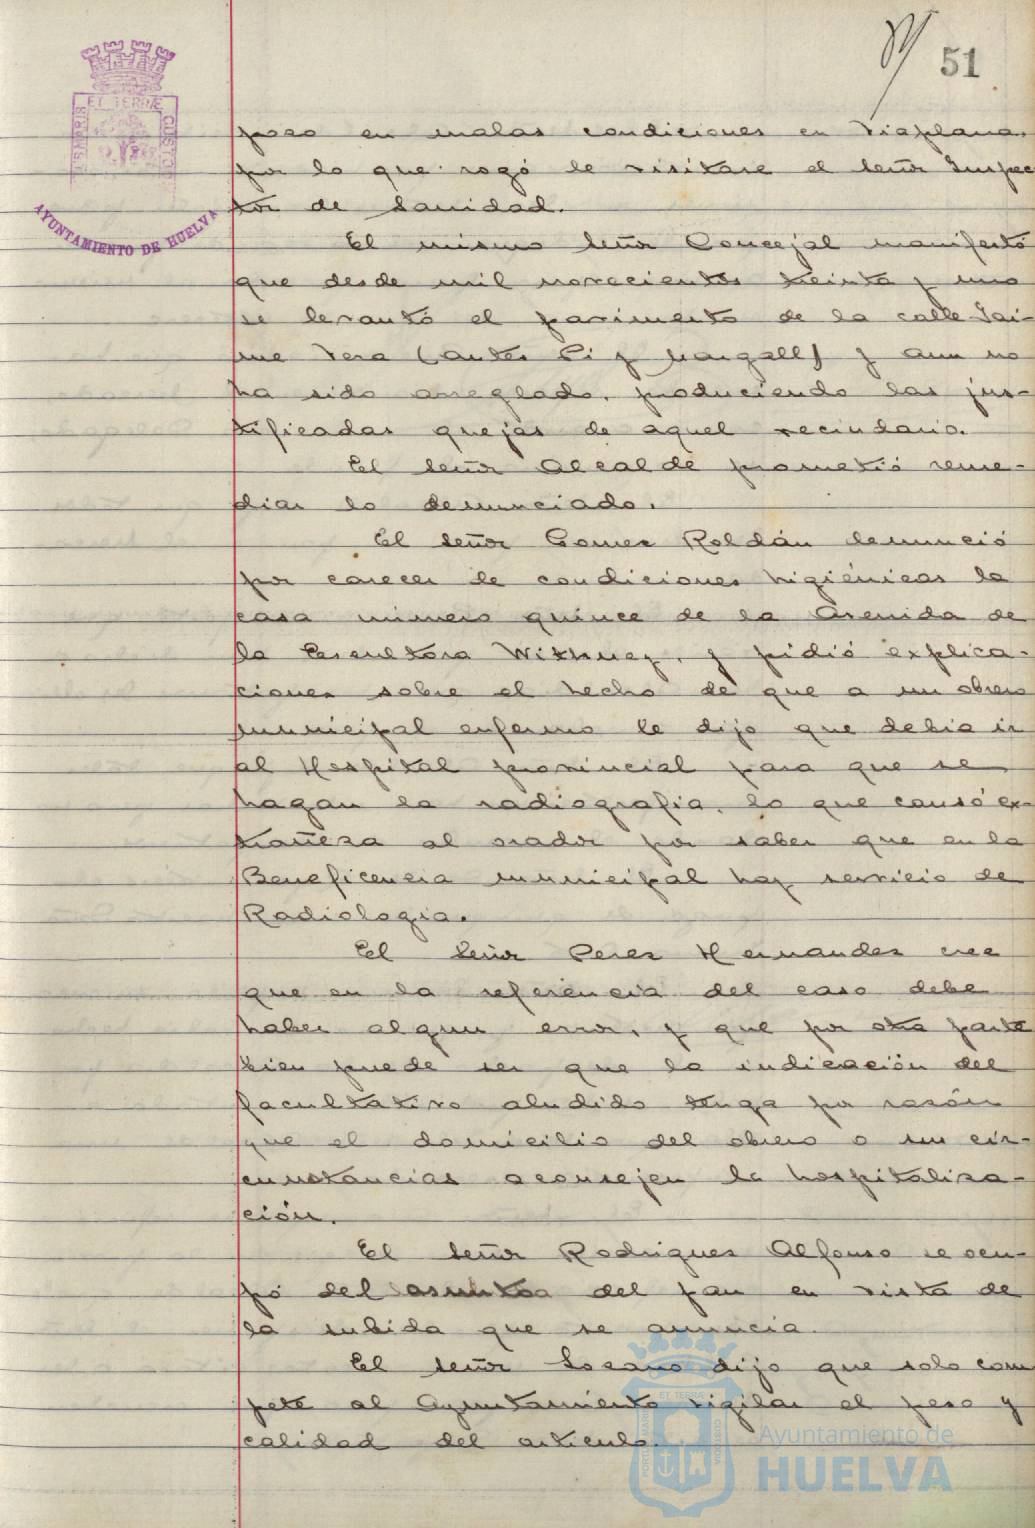 51
ET TERRÆ
AYUNTAMIENTO DE HUELVA
pozo en malas condiciones en Viaplana
por lo que rogó le visitase el señor Inspec
tor de Sanidad.
El mismo señor Concejal manifestó
que desde mil novecientos treinta y uno
se levantó el pavimento de la calle Jai-
me Vera (antes Pi y Margall) y aun no
ha sido arreglado, produciendo las jus-
tificadas quejas de aquel vecindario.
El señor Alcalde prometió reme-
diar lo denunciado.
El señor Gomez Roldán denunció
por carecer de condiciones higiénicas la
casa número quince de la Avenida de
la Escultora Withney, y pidió explica-
ciones sobre el hecho de que a un obrero
municipal enfermo le dijo que debia ir
al Hospital provincial para que se
hagan la radiografia, lo que causó ex-
trañeza al orador por saber que en la
Beneficencia municipal hay servicio de
Radiologia.
El señor Perez Hernandez cree
que en la referencia del caso debe
haber algun error, y que por otra parte
bien puede ser que la indicación del
facultativo aludido tenga por razón
que el domicilio del obrero o sus cir-
cunstancias aconsejen la hospitaliza-
ción.
El señor Rodrigues Alfonso se ocu-
pó del asunto del pan en vista de
la subida que se anuncia.
El señor Lozano dijo que solo com
pete al Ayuntamiento vigilar el peso y
calidad del articulo.
Ayuntamiento de
HUELVA